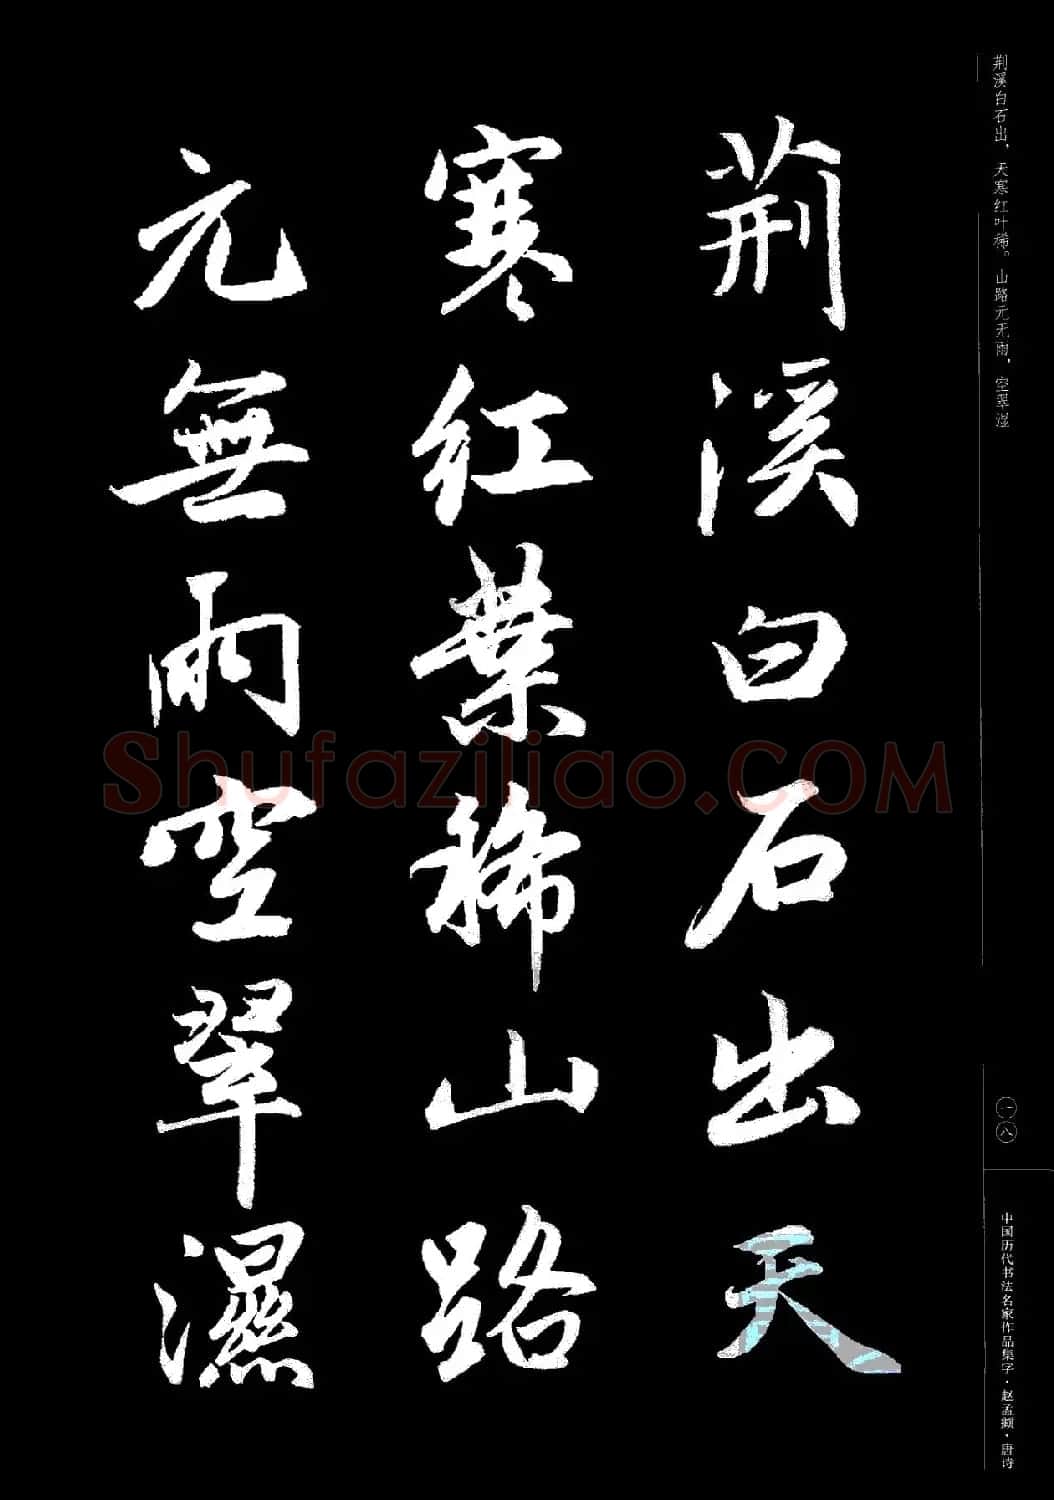 荆溪白石出，天寒红叶稀。山路元无雨，空翠湿
荆溪白石出天
寒红葉稀山路
元無雨空翠濕
一八
中国历代书法名家作品集字·赵孟頫·唐诗
Shufaziliao.COM